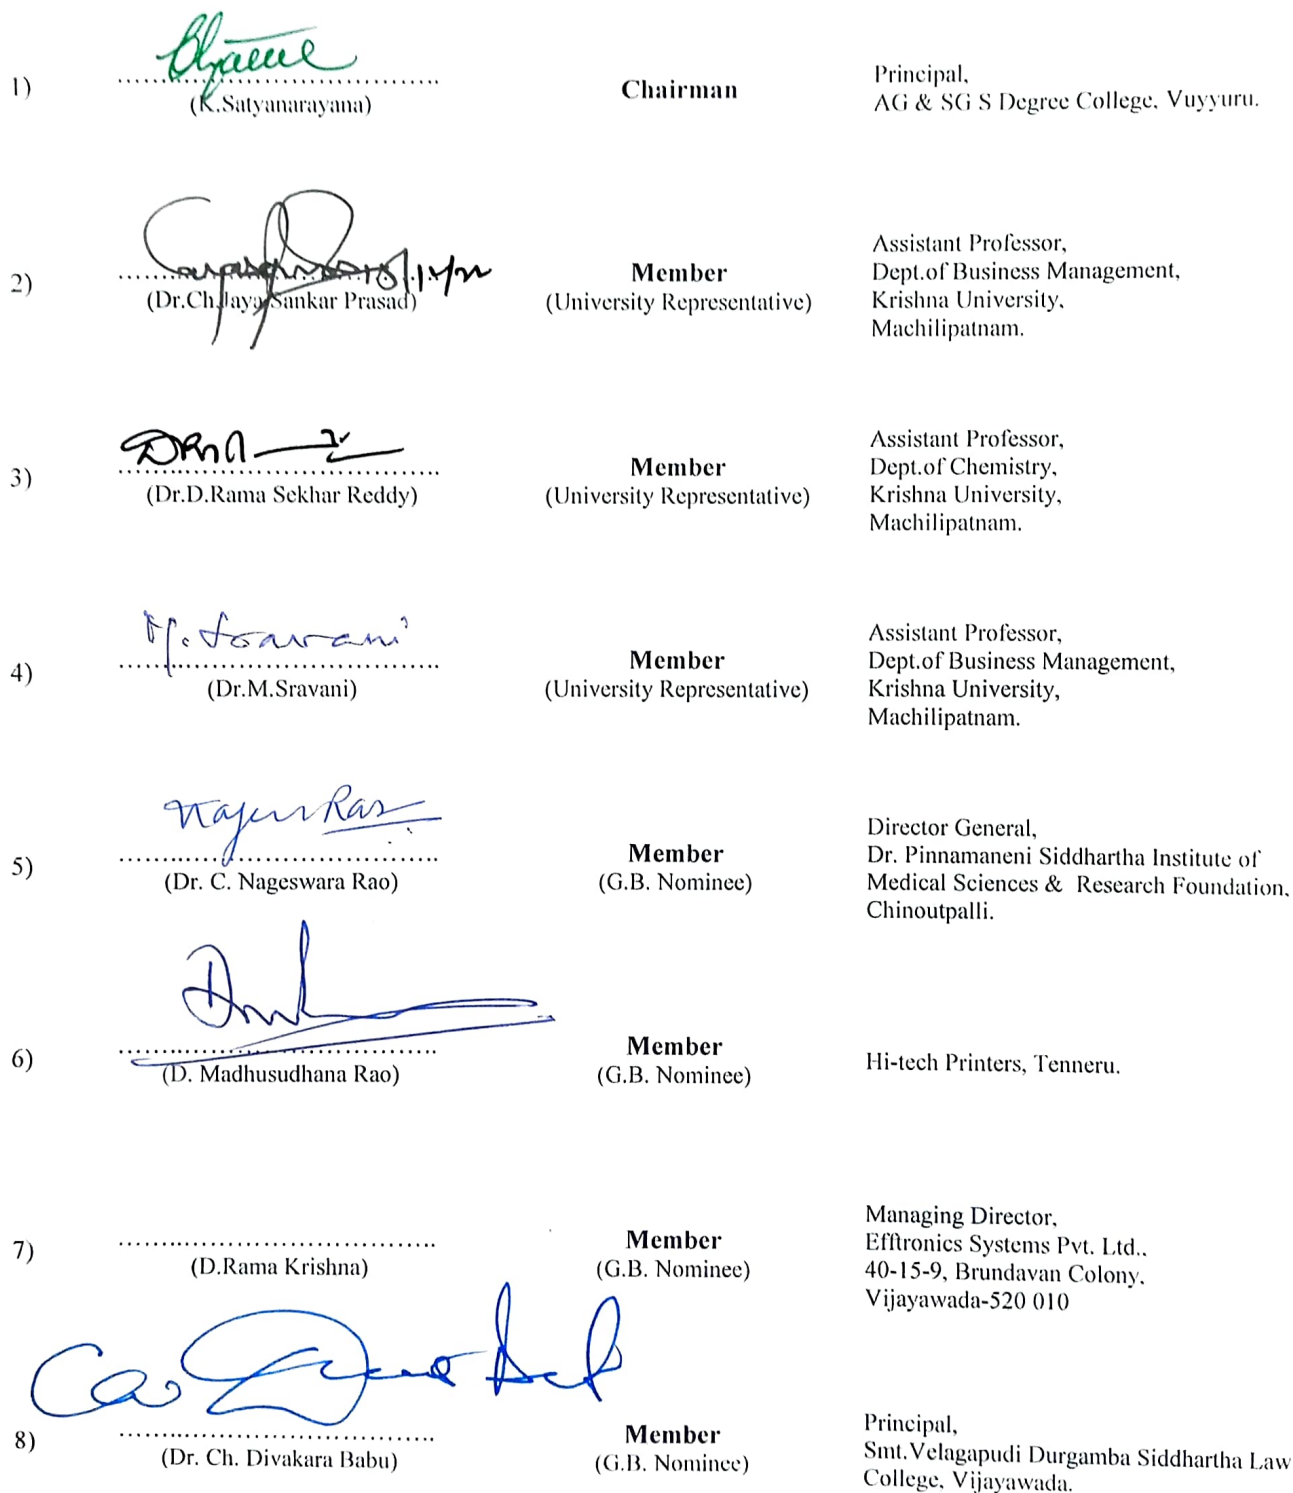 1)
....................................
(K.Satyanarayana)
Chairman
Principal,
AG & SG S Degree College, Vuyyuru.
2)
(Dr.Ch.Jaya Sankar Prasad)
Member
(University Representative)
Assistant Professor,
Dept.of Business Management,
Krishna University,
Machilipatnam.
3)
....................................
(Dr.D.Rama Sekhar Reddy)
Member
(University Representative)
Assistant Professor,
Dept.of Chemistry,
Krishna University,
Machilipatnam.
4)
M. Sravani
....................................
(Dr.M.Sravani)
Member
(University Representative)
Assistant Professor,
Dept.of Business Management,
Krishna University,
Machilipatnam.
5)
....................................
(Dr. C. Nageswara Rao)
Member
(G.B. Nominee)
Director General,
Dr. Pinnamaneni Siddhartha Institute of
Medical Sciences &  Research Foundation,
Chinoutpalli.
6)
....................................
(D. Madhusudhana Rao)
Member
(G.B. Nominee)
Hi-tech Printers, Tenneru.
7)
....................................
(D.Rama Krishna)
Member
(G.B. Nominee)
Managing Director,
Efftronics Systems Pvt. Ltd.,
40-15-9, Brundavan Colony,
Vijayawada-520 010
8)
....................................
(Dr. Ch. Divakara Babu)
Member
(G.B. Nominee)
Principal,
Smt.Velagapudi Durgamba Siddhartha Law
College, Vijayawada.